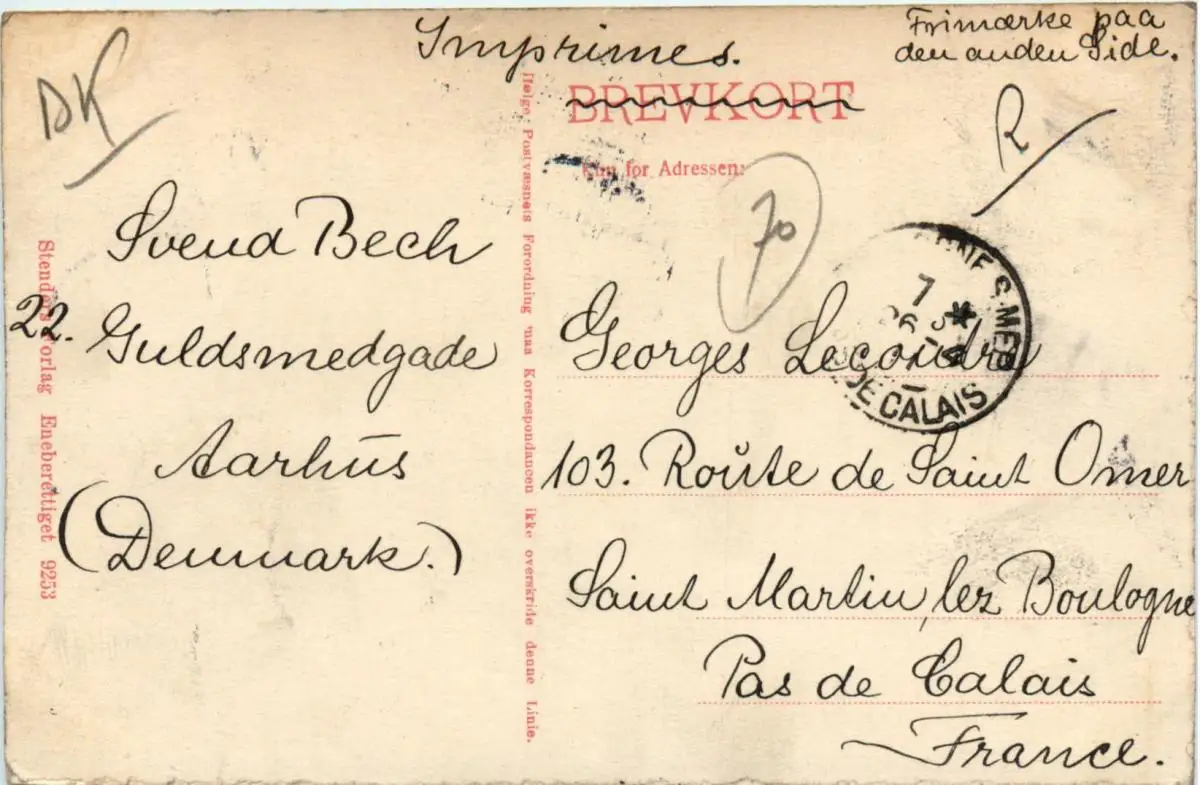 Imprimes.
Frimærke paa
den anden Side.
DK
BREVKORT
R
Kun for Adressen:
70
Svend Bech
22. Guldsmedgade
Aarhus
(Denmark.)
Stenders Forlag Eneberettiget 9253
Ifølge Postvæsnets Forordning maa Korrespondancen ikke overskride denne Linie.
7
DE CALAIS
Georges Lecoudre
103. Route de Saint Omer
Saint Martin, lez Boulogne
Pas de Calais
France.